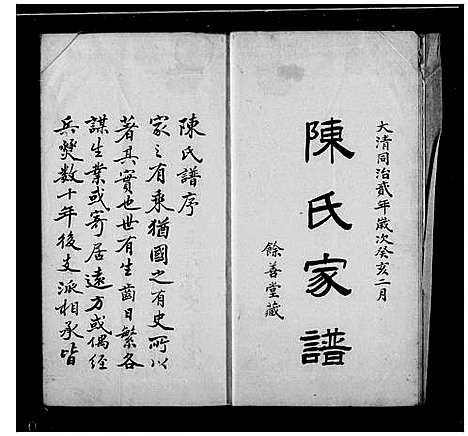 大清同治貳年歲次癸亥二月
陳氏家譜
餘善堂藏
陳氏譜序
家之有乘猶國之有史所以
著其實也世有生齒日繁各
謀生業或寄居遠方或偶經
兵燹數十年後支派相承皆